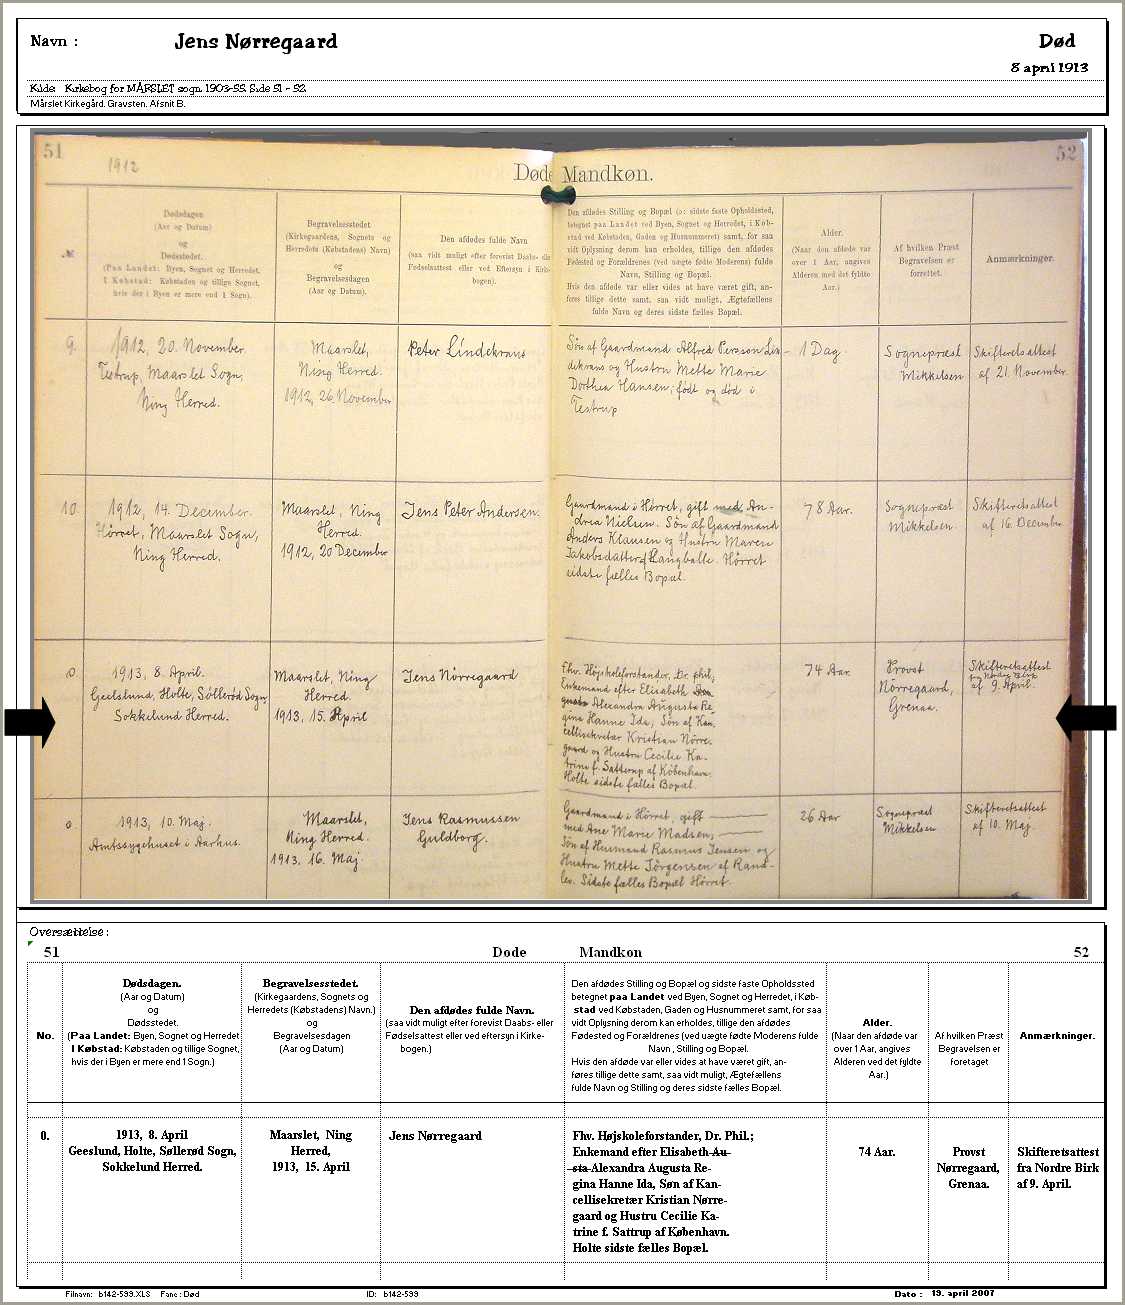 Navn : Jens Nørregaard Død
8 april 1913
Kilde: Kirkebog for MÅRSLET sogn. 1903-55. Side 51 - 52.
Mårslet Kirkegård. Gravsten. Afsnit B.
51 52
1912
Døde Mandkøn.
№
Dødsdagen
(Aar og Datum)
og
Dødsstedet.
(Paa Landet: Byen, Sognet og Herredet.
I Købstad: Købstaden og tillige Sognet,
hvis der i Byen er mere end 1 Sogn).
Begravelsesstedet
(Kirkegaardens, Sognets og
Herredets (Købstadens) Navn)
og
Begravelsesdagen
(Aar og Datum).
Den afdødes fulde Navn
(saa vidt muligt efter forevist Daabs- eller
Fødselsattest eller ved Eftersyn i Kirke-
bogen).
Den afdødes Stilling og Bopæl (ɔ: sidste faste Opholdssted,
betegnet paa Landet ved Byen, Sognet og Herredet, i Køb-
stad ved Købstaden, Gaden og Husnummeret) samt, for saa
vidt Oplysning derom kan erholdes, tillige den afdødes
Fødested og Forældrenes (ved uægte fødte Moderens) fulde
Navn, Stilling og Bopæl.
Hvis den afdøde var eller vides at have været gift, an-
føres tillige dette samt, saa vidt muligt, Ægtefællens
fulde Navn og deres sidste fælles Bopæl.
Alder.
(Naar den afdøde var
over 1 Aar, angives
Alderen med det fyldte
Aar.)
Af hvilken Præst
Begravelsen er
forrettet.
Anmærkninger.
9.
1912, 20. November.
Testrup, Maarslet Sogn,
Ning Herred.
Maarslet,
Ning Herred.
1912, 26. November
Peter Lindekrans
Søn af Gaardmand Alfred Persson Lin-
dekrans og Hustru Mette Marie
Dorthea Hansen; født og død i
Testrup
1 Dag.
Sognepræst
Mikkelsen
Skifteretsattest
af 21. November.
10.
1912, 14. December.
Hørret, Maarslet Sogn,
Ning Herred.
Maarslet, Ning
Herred.
1912, 20 December
Jens Peter Andersen.
Gaardmand i Hørret, gift med An-
drea Nielsen. Søn af Gaardmand
Anders Klausen og Hustru Maren
Jakobsdatter af Langballe. Hørret
sidste fælles Bopæl.
78 Aar.
Sognepræst
Mikkelsen
Skifteretsattest
af 16. December
0
1913, 8. April.
Geelslund, Holte, Søllerød Sogn,
Sokkelund Herred.
Maarslet, Ning
Herred.
1913, 15. April
Jens Nørregaard
Fhv. Højskoleforstander, Dr. phil;
Enkemand efter Elisabeth Au-
gusta Alexandra Augusta Re-
gina Hanne Ida, Søn af Kan-
cellisekretær Kristian Nørre-
gaard og Hustru Cecilie Ka-
trine f. Satterup af København.
Holte sidste fælles Bopæl.
74 Aar.
Provst
Nørregaard,
Grenaa.
Skifteretsattest
fra Nordre Birk
af 9. April.
0
1913, 10. Maj.
Amtssygehuset i Aarhus.
Maarslet,
Ning Herred.
1913. 16. Maj.
Jens Rasmussen
Guldborg.
Gaardmand i Hørret, gift
med Ane Marie Madsen,
Søn af Husmand Rasmus Jensen og
Hustru Mette Jørgensen af Rand-
lev. Sidste fælles Bopæl Hørret.
26 Aar
Sognepræst
Mikkelsen
Skifteretsattest
af 10. Maj.
Oversættelse :
51 Døde Mandkøn 52
No.
Dødsdagen.
(Aar og Datum)
og
Dødsstedet.
(Paa Landet: Byen, Sognet og Herredet
I Købstad: Købstaden og tillige Sognet,
hvis der i Byen er mere end 1 Sogn.)
Begravelsesstedet.
(Kirkegaardens, Sognets og
Herredets (Købstadens) Navn.)
og
Begravelsesdagen
(Aar og Datum)
Den afdødes fulde Navn.
(saa vidt muligt efter forevist Daabs- eller
Fødselsattest eller ved eftersyn i Kirke-
bogen.)
Den afdødes Stilling og Bopæl og sidste faste Opholdssted
betegnet paa Landet ved Byen, Sognet og Herredet, i Køb-
stad ved Købstaden, Gaden og Husnummeret samt, for saa
vidt Oplysning derom kan erholdes, tillige den afdødes
Fødested og Forældrenes (ved uægte fødte Moderens fulde
Navn , Stilling og Bopæl.
Hvis den afdøde var eller vides at have været gift, an-
føres tillige dette samt, saa vidt muligt, Ægtefællens
fulde Navn og Stilling og deres sidste fælles Bopæl.
Alder.
(Naar den afdøde var
over 1 Aar, angives
Alderen ved det fyldte
Aar.)
Af hvilken Præst
Begravelsen er
foretaget
Anmærkninger.
0.
1913, 8. April
Geeslund, Holte, Søllerød Sogn,
Sokkelund Herred.
Maarslet, Ning
Herred,
1913, 15. April
Jens Nørregaard
Fhv. Højskoleforstander, Dr. Phil.;
Enkemand efter Elisabeth Au-
sta Alexandra Augusta Re-
gina Hanne Ida, Søn af Kan-
cellisekretær Kristian Nørre-
gaard og Hustru Cecilie Ka-
trine f. Sattrup af København.
Holte sidste fælles Bopæl.
74 Aar.
Provst
Nørregaard,
Grenaa.
Skifteretsattest
fra Nordre Birk
af 9. April.
Filnavn: b142-599.XLS Fane : Død ID: b142-599 Dato : 19. april 2007